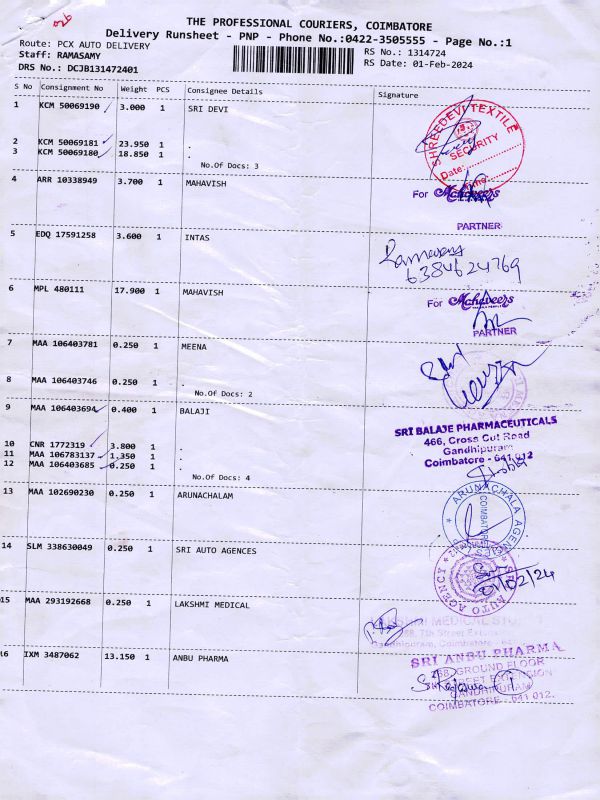 THE PROFESSIONAL COURIERS, COIMBATORE
Delivery Runsheet - PNP - Phone No.:0422-3505555 - Page No.:1
Route: PCX AUTO DELIVERY
RS No.: 1314724
Staff: RAMASAMY
RS Date: 01-Feb-2024
DRS No.: DCJB131472401
S No Consignment No Weight PCS Consignee Details Signature
1 KCM 50069190 3.000 1 SRI DEVI
SHREEDEVI TEXTILE
SECURITY
Date:
2 KCM 50069181 23.950 1 .
3 KCM 50069180 18.850 1 .
No.Of Docs: 3
4 ARR 10338949 3.700 1 MAHAVISH
For Mahaveers
PARTNER
5 EDQ 17591258 3.600 1 INTAS
6384624769
6 MPL 480111 17.900 1 MAHAVISH
For Mahaveers
PARTNER
7 MAA 106403781 0.250 1 MEENA
8 MAA 106403746 0.250 1 .
No.Of Docs: 2
9 MAA 106403694 0.400 1 BALAJI
SRI BALAJE PHARMACEUTICALS
466, Cross Cut Road
Gandhipuram
Coimbatore - 641 012
10 CNR 1772319 3.800 1 .
11 MAA 106783137 1.350 1 .
12 MAA 106403685 0.250 1 .
No.Of Docs: 4
13 MAA 102690230 0.250 1 ARUNACHALAM
ARUNACHALA AGENCIES
COIMBATORE
14 SLM 338630049 0.250 1 SRI AUTO AGENCES
SRI AUTO AGENCY
01/02/24
15 MAA 293192668 0.250 1 LAKSHMI MEDICAL
LAKSHMI MEDICAL STO
68, 7th Street Extension
Gandhipuram, Coimbatore
16 IXM 3487062 13.150 1 ANBU PHARMA
SRI ANBU PHARMA
GROUND FLOOR
STREET EXTENSION
GANDHIPURAM
COIMBATORE - 641 012.